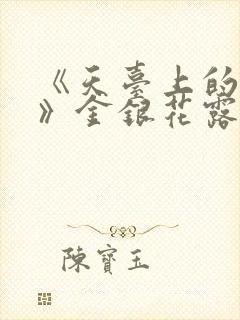 《天臺上的
》金銀花露
陳寶玉